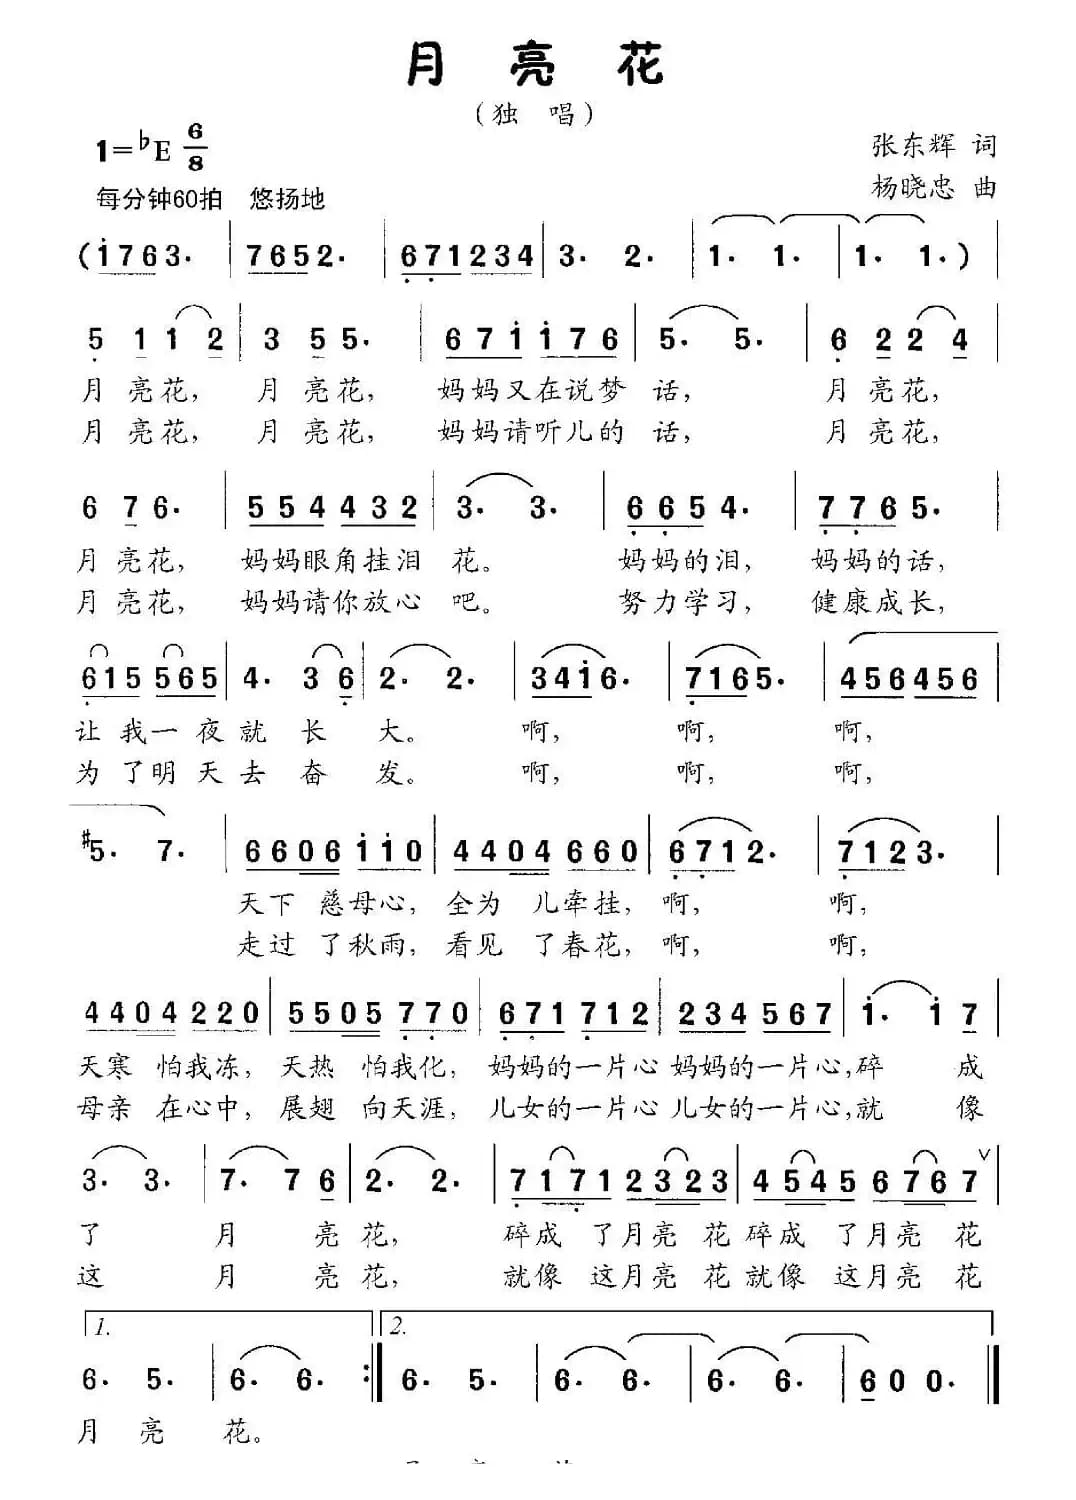 月亮花
（独 唱）
1=♭E 6/8
张东辉 词
每分钟60拍 悠扬地
杨晓忠 曲
(1763. | 7652. | 671234 | 3. 2. | 1. 1. | 1. 1.)
5 1 1 2 | 3 5 5. | 671176 | 5. 5. | 6 2 2 4
月 亮花， 月 亮花， 妈妈又在说梦 话， 月 亮花，
月 亮花， 月 亮花， 妈妈请听儿的 话， 月 亮花，
6 7 6. | 554432 | 3. 3. | 6654. | 7765.
月 亮花， 妈妈眼角挂泪 花。 妈妈的泪， 妈妈的话，
月 亮花， 妈妈请你放心 吧。 努力学习， 健康成长，
615 565 | 4. 3 6 | 2. 2. | 3416. | 7165. | 456456
让 我一 夜就 长 大。 啊， 啊， 啊，
为 了明 天去 奋 发。 啊， 啊， 啊，
#5. 7. | 6606 110 | 4404 660 | 6712. | 7123.
天下 慈母心， 全为 儿牵挂， 啊， 啊，
走过 了秋雨， 看见 了春花， 啊， 啊，
4404 220 | 5505 770 | 671 712 | 234 567 | 1. 1 7
天寒 怕我冻， 天热 怕我化， 妈妈的一片心 妈妈的一片心，碎 成
母亲 在心中， 展翅 向天涯， 儿女的一片心 儿女的一片心，就 像
3. 3. | 7. 7 6 | 2. 2. | 7171 2323 | 4545 6767 ∨
了 月 亮 花， 碎成 了月亮 花 碎成 了月亮 花
这 月 亮 花， 就像 这月亮 花 就像 这月亮 花
1. 2.
6. 5. | 6. 6. :| 6. 5. | 6. 6. | 6. 6. | 600 0. ‖
月 亮 花。